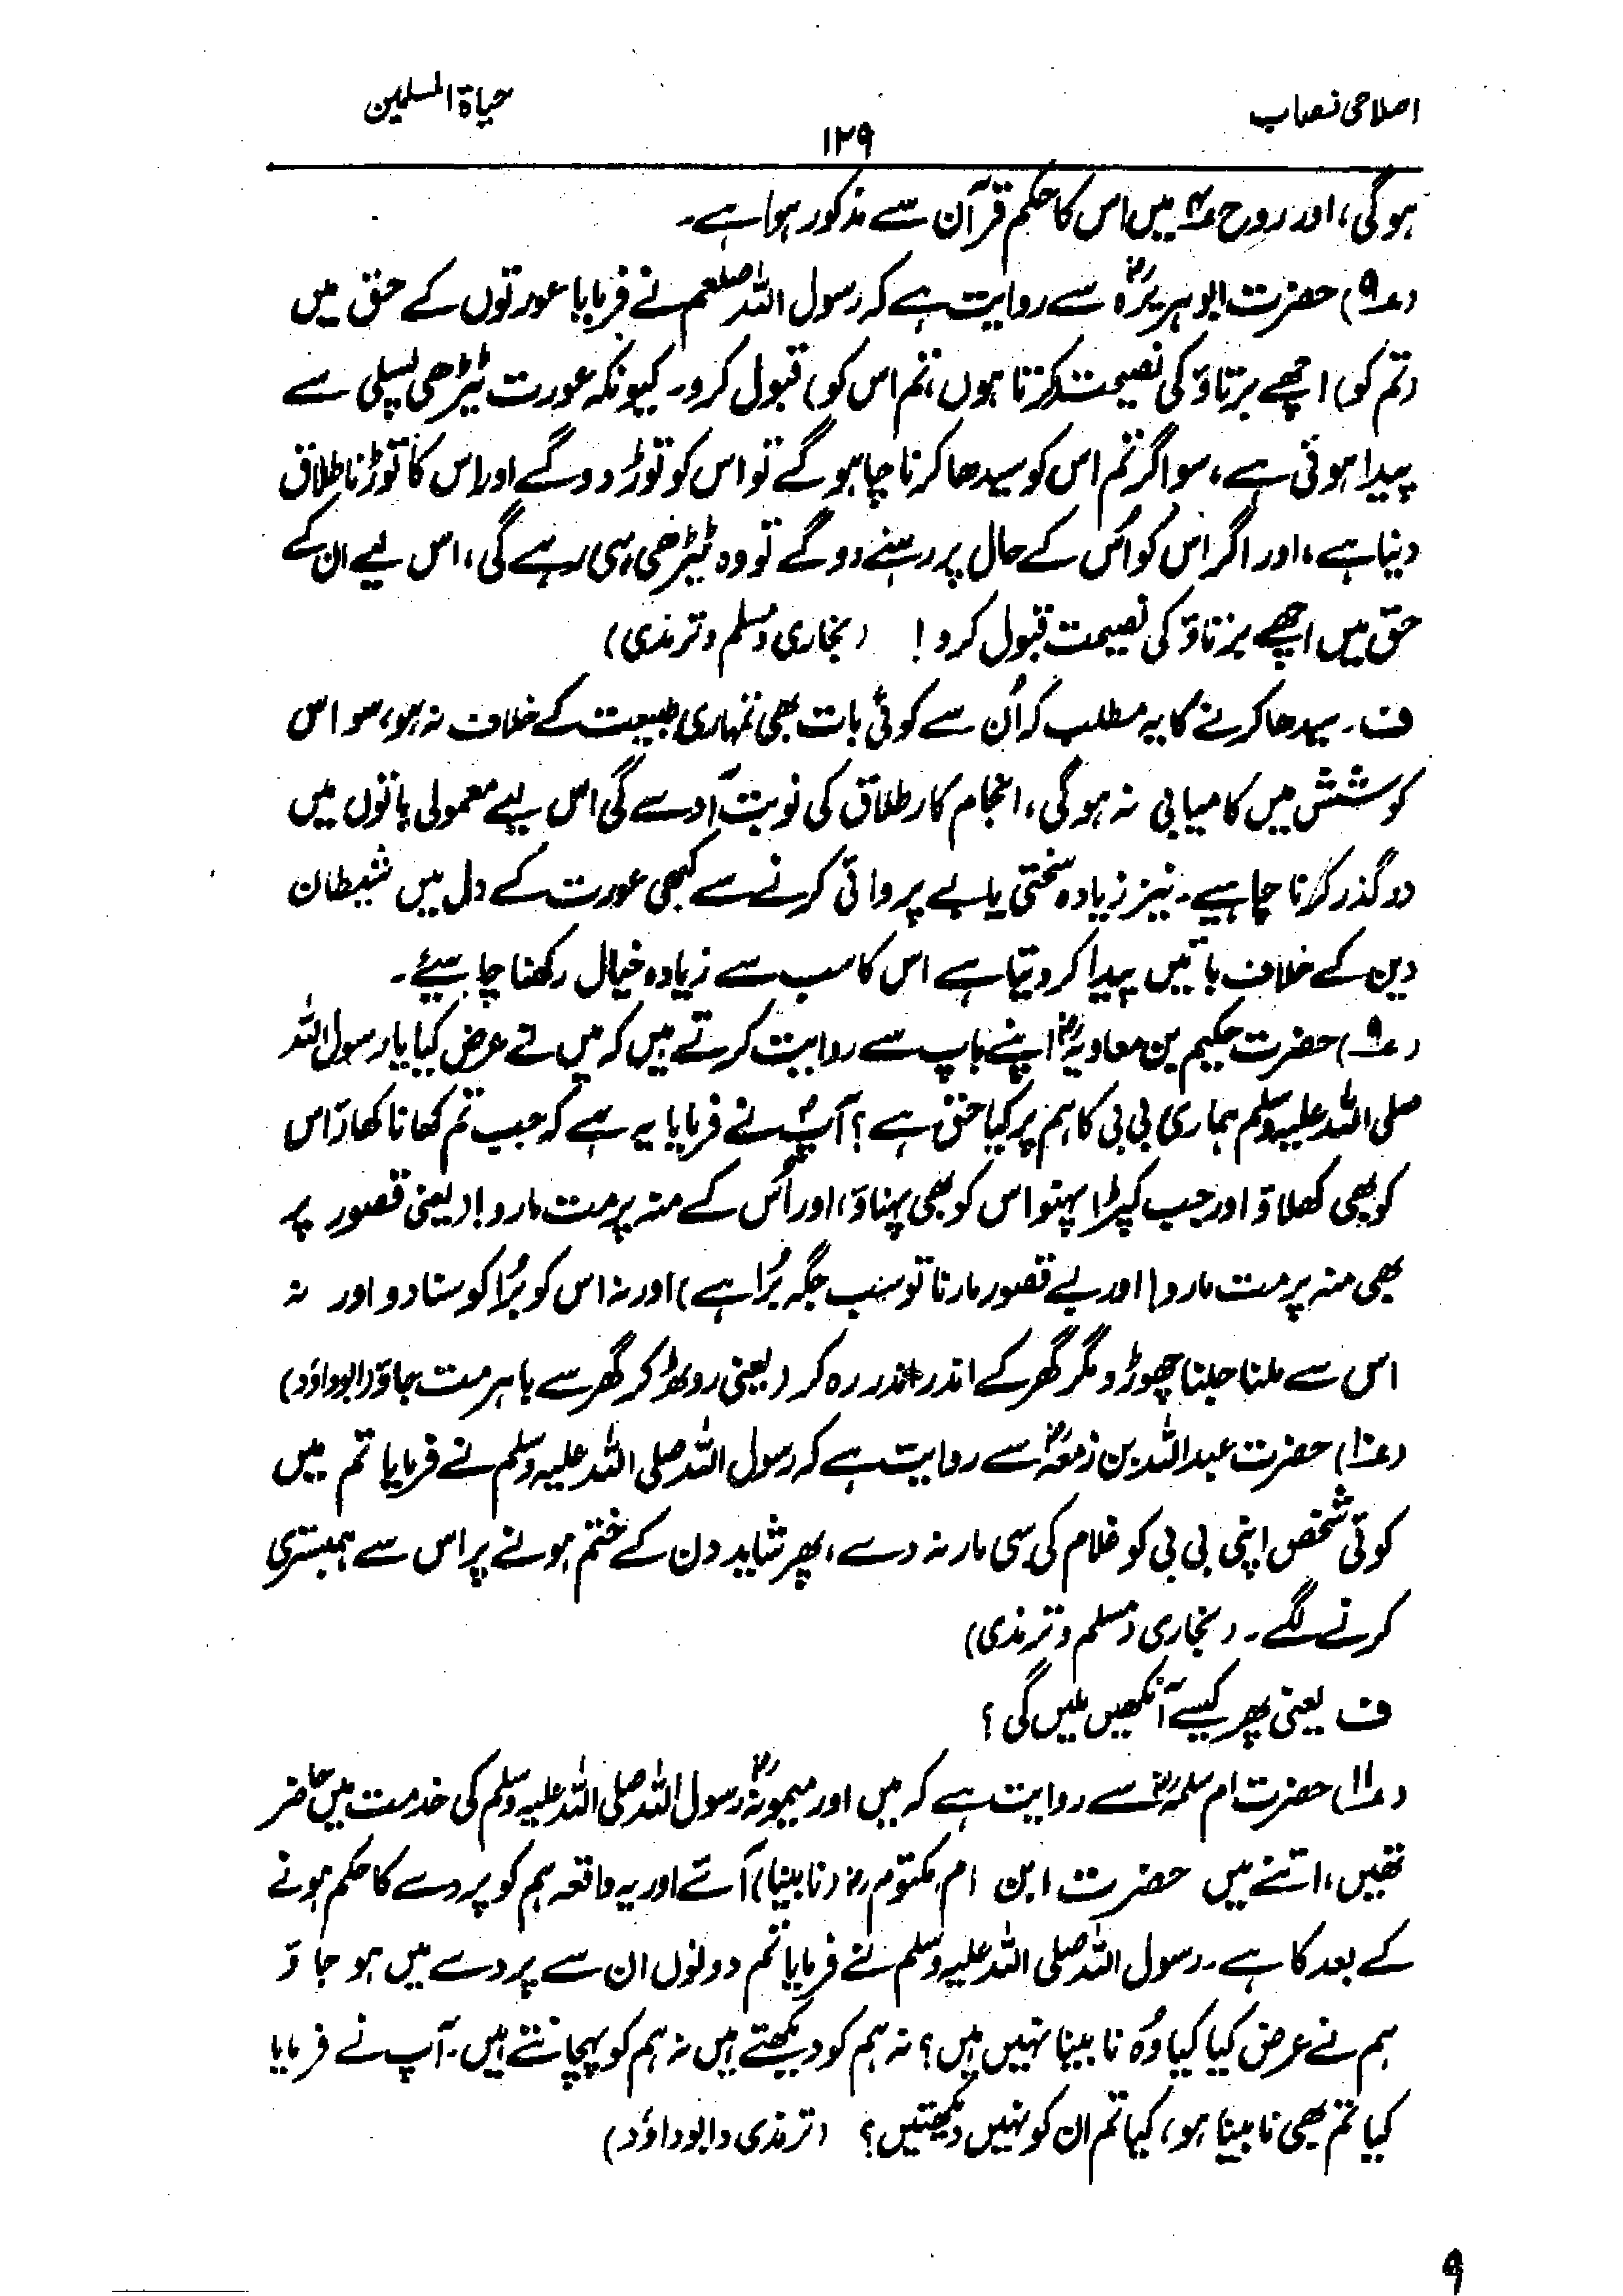 اصلاحی نصاب
حیاۃ المسلمین
۱۲۹
ہوگی، اور روح میں اس کا حکم قرآن سے مذکور ہوا ہے۔
(۹) حضرت ابوہریرہؓ سے روایت ہے کہ رسول اللہ صلعم نے فرمایا عورتوں کے حق میں
(تم کو) اچھے برتاؤ کی نصیحت کرتا ہوں، تم اس کو) قبول کرو۔ کیونکہ عورت ٹیڑھی پسلی سے
پیدا ہوئی ہے، سو اگر تم اس کو سیدھا کرنا چاہو گے تو اس کو توڑ دو گے اور اس کا توڑنا طلاق
دینا ہے، اور اگر اس کو اُس کے حال پر رہنے دو گے تو وہ ٹیڑھی ہی رہے گی، اس لیے ان کے
حق میں اچھے برتاؤ کی نصیحت قبول کرو! (بخاری ومسلم وترمذی)
ف۔ سیدھا کرنے کا یہ مطلب کہ اُن سے کوئی بات بھی تمہاری طبیعت کے خلاف نہ ہو، سو اس
کوشش میں کامیابی نہ ہوگی، انجام کار طلاق کی نوبت آوے گی اس لیے معمولی باتوں میں
درگذر کرنا چاہیے۔ نیز زیادہ سختی یا بے پروائی کرنے سے کبھی عورت کے دل میں شیطان
دین کے خلاف باتیں پیدا کر دیتا ہے اس کا سب سے زیادہ خیال رکھنا چاہیئے۔
(۹) حضرت حکیم بن معاویہؓ اپنے باپ سے روایت کرتے ہیں کہ میں نے عرض کیا یا رسول اللہ
صلی اللہ علیہ وسلم ہماری بی بی کا ہم پر کیا حق ہے؟ آپؐ نے فرمایا یہ ہے کہ جب تم کھانا کھاؤ اس
کو بھی کھلاؤ اور جب کپڑا پہنو اس کو بھی پہناؤ، اور اُس کے منہ پر مت مارو! (یعنی قصور پر
بھی منہ پر مت مارو! اور بے قصور مارنا تو سب جگہ بُرا ہے) اور نہ اس کو بُرا کوسنا دو اور نہ
اس سے ملنا جلنا چھوڑو مگر گھر کے اندر اندر رہ کر (یعنی روٹھ کر گھر سے باہر مت جاؤ (ابوداؤد)
(۱۰) حضرت عبداللہ بن زمعہؓ سے روایت ہے کہ رسول اللہ صلی اللہ علیہ وسلم نے فرمایا تم میں
کوئی شخص اپنی بی بی کو غلام کی سی مار نہ دے، پھر شاید دن کے ختم ہونے پر اس سے ہمبستری
کرنے لگے۔ (بخاری ومسلم وترمذی)
ف یعنی پھر کیسے آنکھیں ملیں گی؟
(۱۱) حضرت ام سلمہؓ سے روایت ہے کہ میں اور میمونہؓ رسول اللہ صلی اللہ علیہ وسلم کی خدمت میں حاضر
تھیں، اتنے میں حضرت ابن ام مکتوم رضؓ (نابینا) آئے اور یہ واقعہ ہم کو پردے کا حکم ہونے
کے بعد کا ہے۔ رسول اللہ صلی اللہ علیہ وسلم نے فرمایا تم دونوں ان سے پردے میں ہو جاؤ
ہم نے عرض کیا کیا وُہ نابینا نہیں ہیں؟ نہ ہم کو دیکھتے ہیں نہ ہم کو پہچانتے ہیں۔ آپ نے فرمایا
کیا تم بھی نابینا ہو، کیا تم ان کو نہیں دیکھتیں؟ (ترمذی وابوداؤد)
۹